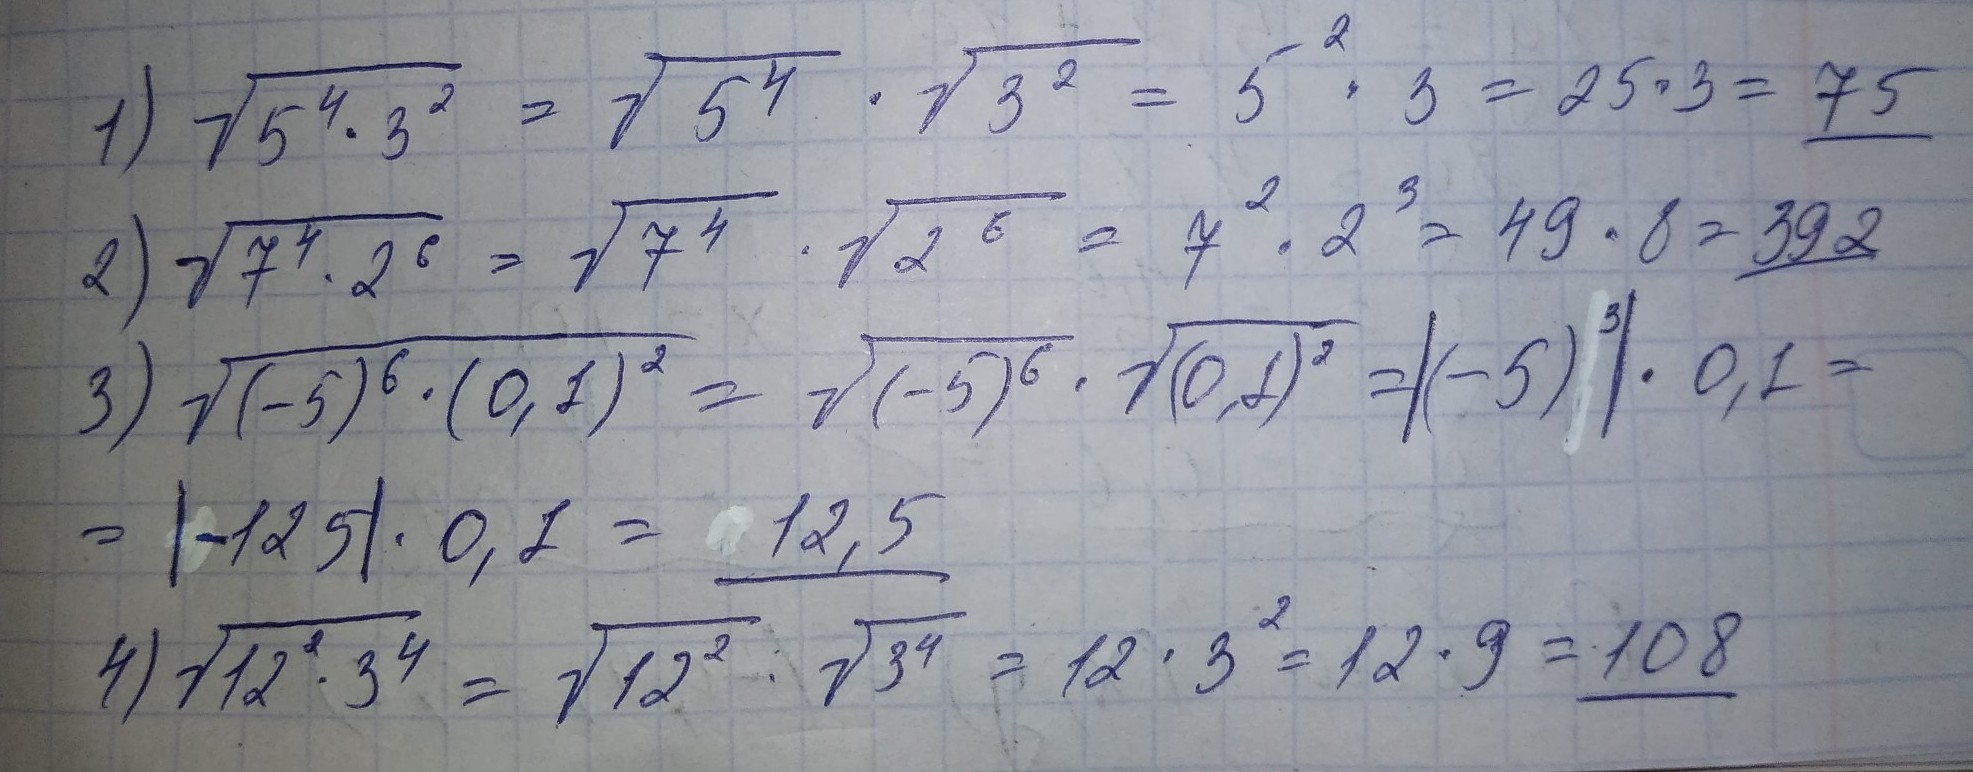 1) √(5⁴·3²) = √(5⁴) · √(3²) = 5² · 3 = 25·3 = 75
2) √(7⁴·2⁶) = √(7⁴) · √(2⁶) = 7² · 2³ = 49 · 8 = 392
3) √((-5)⁶·(0,1)²) = √((-5)⁶) · √((0,1)²) = |(-5)³| · 0,1 =
= |-125| · 0,1 = 12,5
4) √(12²·3⁴) = √(12²) · √(3⁴) = 12 · 3² = 12 · 9 = 108